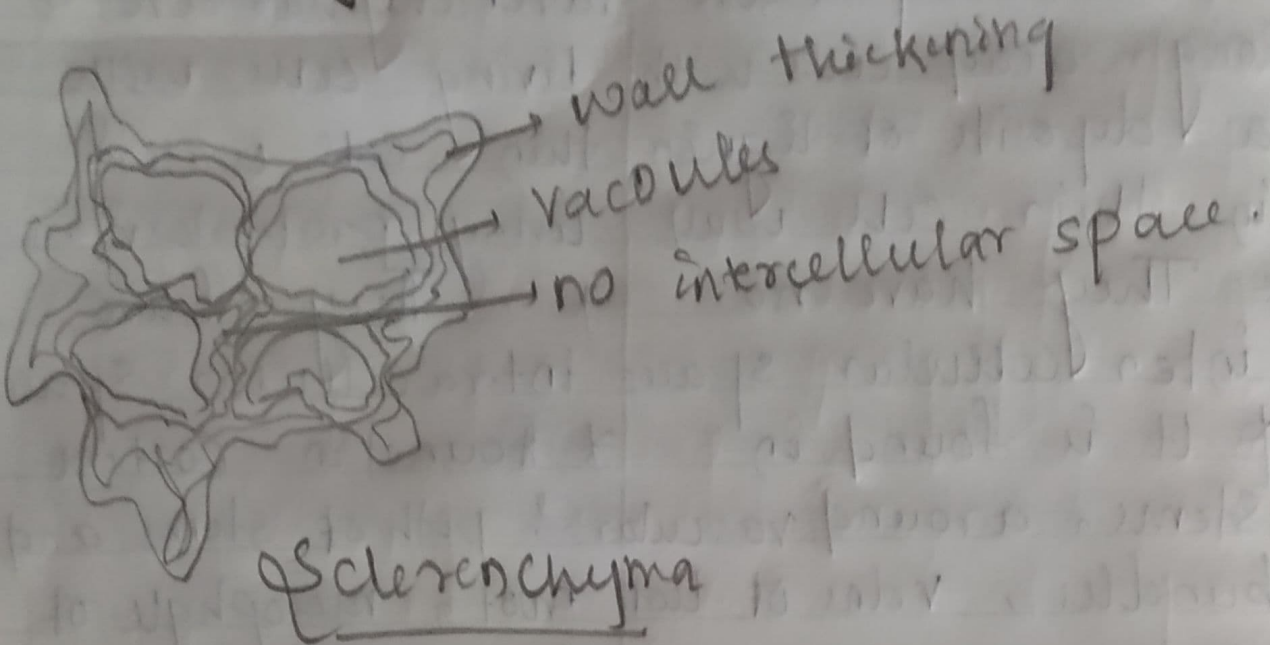 wall thickening
vacoules
no intercellular space.
Sclerenchyma